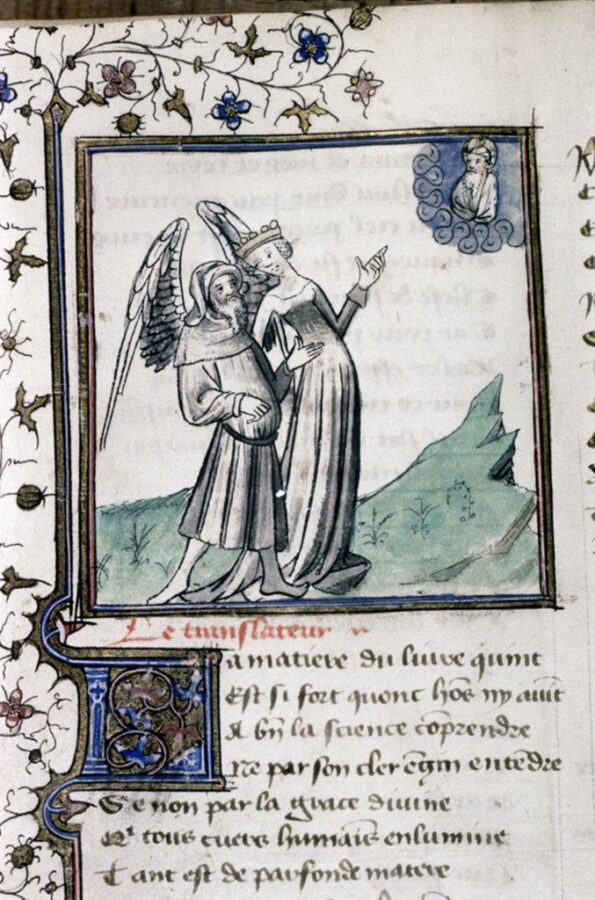 Le translateur
La matiere du livre quint
Est si fort quonc hōs ny auit
A bn̄ la science cōprendre
Ne par son cler engin entēdre
Se non par la grace diuine
Qͥ tous cuers humains enlumine
Tant est de parfonde matere